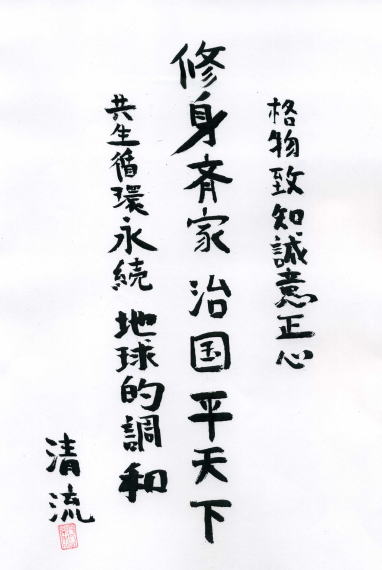 格物致知誠意正心
修身斉家治国平天下
共生循環永続地球的調和
清流